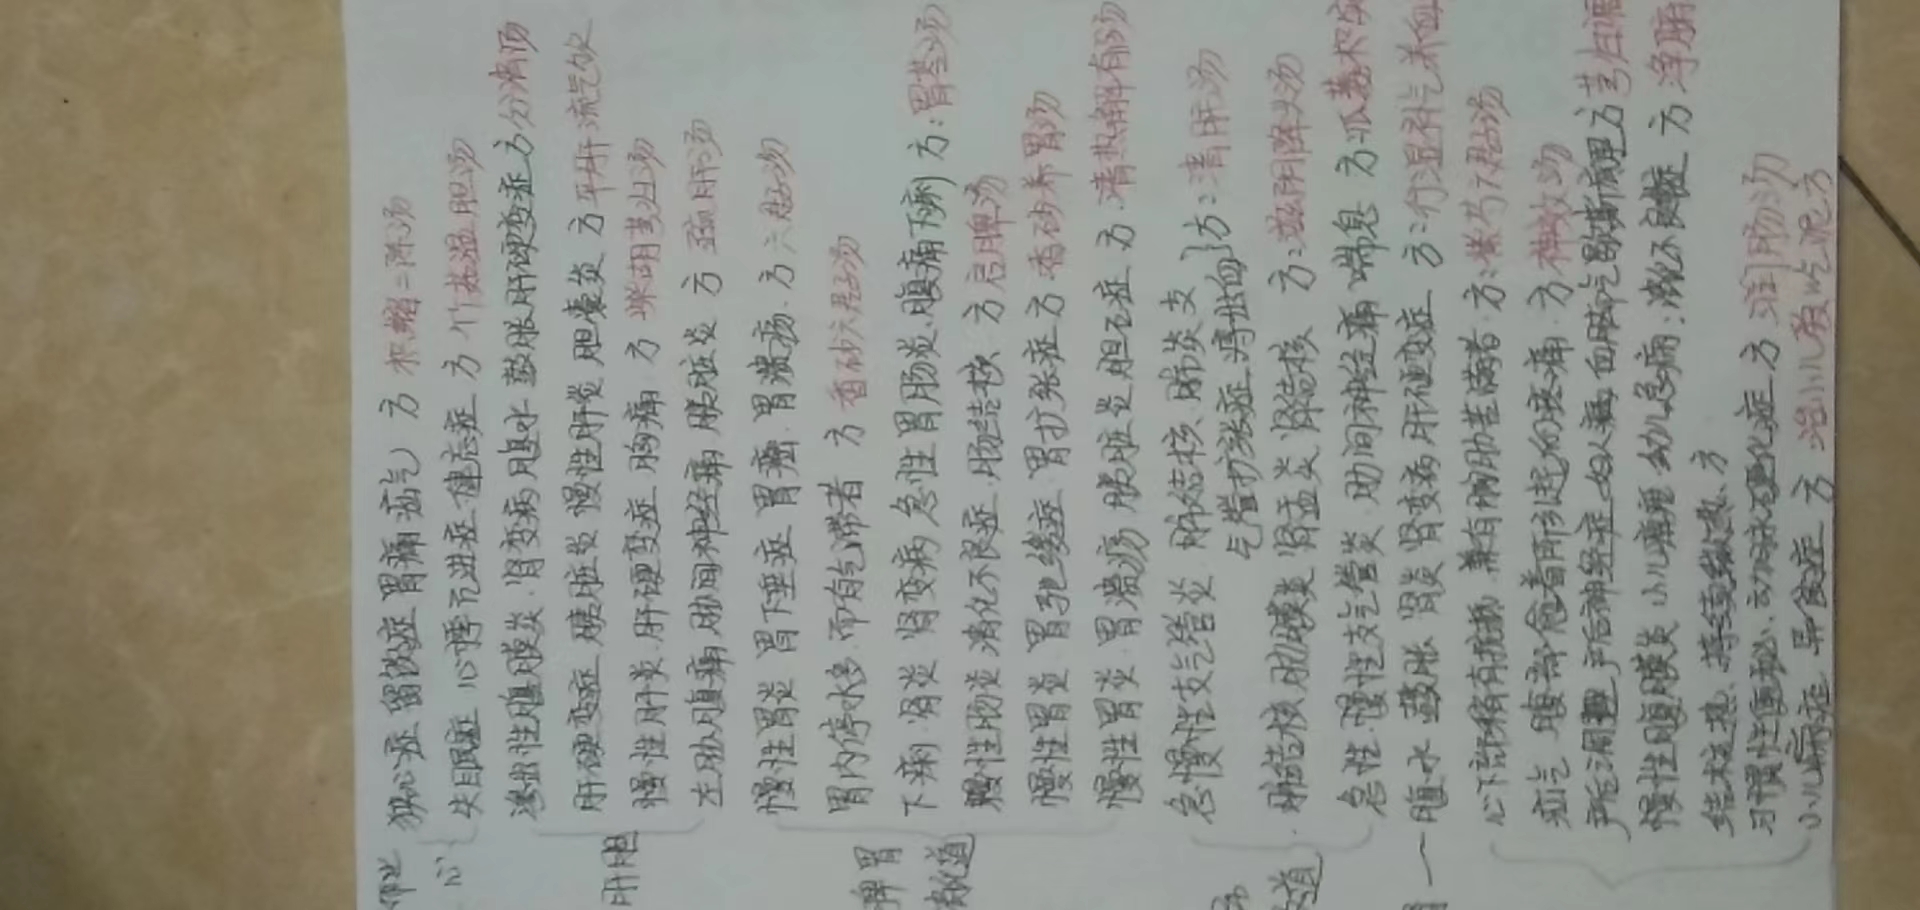 狭心症 留饮症 胃痛 疝气 方 枳缩二陈汤
心 失眠症 心悸亢进症 健忘症 方 竹茹温胆汤
渗出性腹膜炎 肾变病 腹水 鼓胀 肝硬变症 方 分消汤
肝硬变症 胰脏炎 慢性肝炎 胆囊炎 方 平肝流气饮
肝胆 慢性肝炎 肝硬变症 胸痛 方 柴胡
左肋腹痛 肋间神经痛 胰脏炎 方 疏肝汤
慢性胃炎 胃下垂症 胃癌 胃溃疡 方 六君汤
胃内停水多 而有气滞者 方 香砂六君汤
脾胃 下痢 肾炎 肾变病 急性胃肠炎 腹痛下痢 方:胃苓汤
消化道 慢性肠炎 消化不良症 肠结核 方 启脾汤
慢性胃炎 胃弛缓症 胃扩张症 方 香砂养胃汤
慢性胃炎 胃溃疡 胰脏炎 胆石症 方 清热解郁汤
急慢性支气管炎 肺结核 肺炎 支
气管扩张症 痔出血 方:清肝汤
肺结核 肋膜炎 肾盂炎 肾结核 方:滋阴降火汤
急性 慢性支气管炎 肋间神经痛 喘息 方:瓜蒌枳实
腹水 鼓胀 肾炎 肾变病 肝硬变症 方:行湿补气养血
心下部稍有抵抗 兼有胸肋苦满者 方:柴芍六君汤
疝气 腹 者所引起的疼痛 方 神效汤
产后调理 产后神经症 妇人病 血脚气 方 芎归调
慢性腹膜炎 小儿 幼儿 病:消化不良症 方 净腑
结核 热 方
习惯性便秘、动脉硬化症 方 润肠汤
小儿 症 异食症 方 治小儿 吃泥方